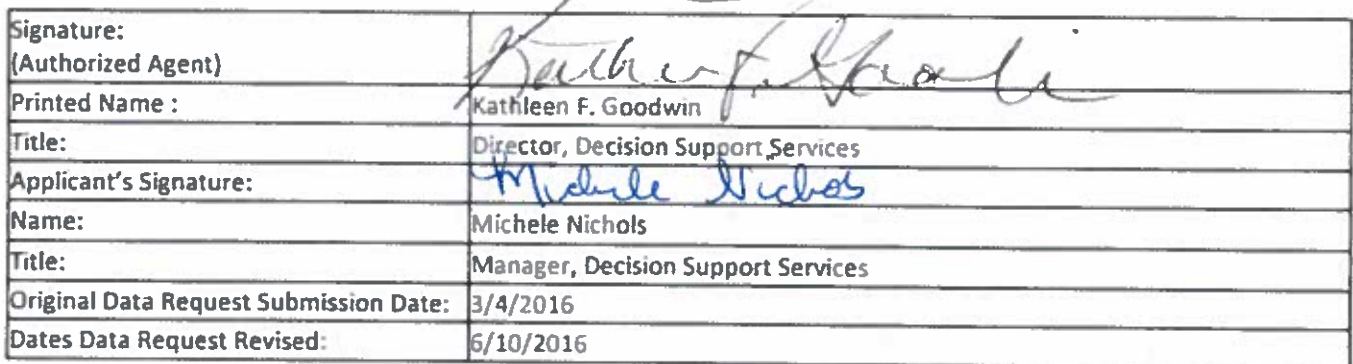 Signature:
(Authorized Agent) Kathleen F. Goodwin
Printed Name : Kathleen F. Goodwin
Title: Director, Decision Support Services
Applicant's Signature: Michele Nichols
Name: Michele Nichols
Title: Manager, Decision Support Services
Original Data Request Submission Date: 3/4/2016
Dates Data Request Revised: 6/10/2016